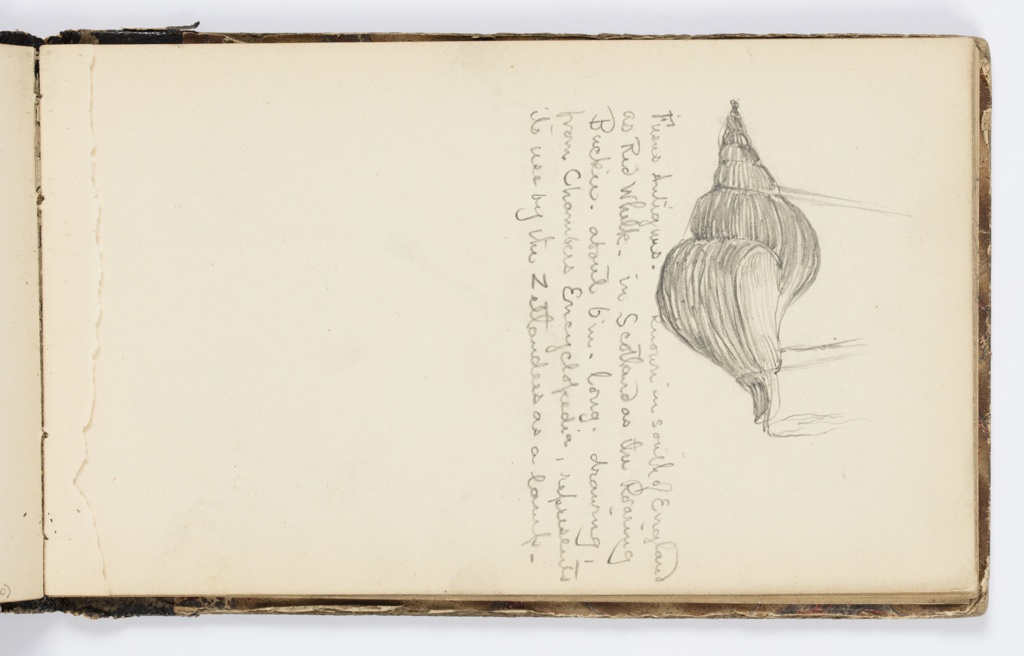 Fusus Antiquus. known in south of England
as Red Whelk - in Scotland as the Roaring
Buckie. about 6 in. long. drawing,
from Chambers Encyclopedia, represents
its use by the Zetlanders as a lamp.